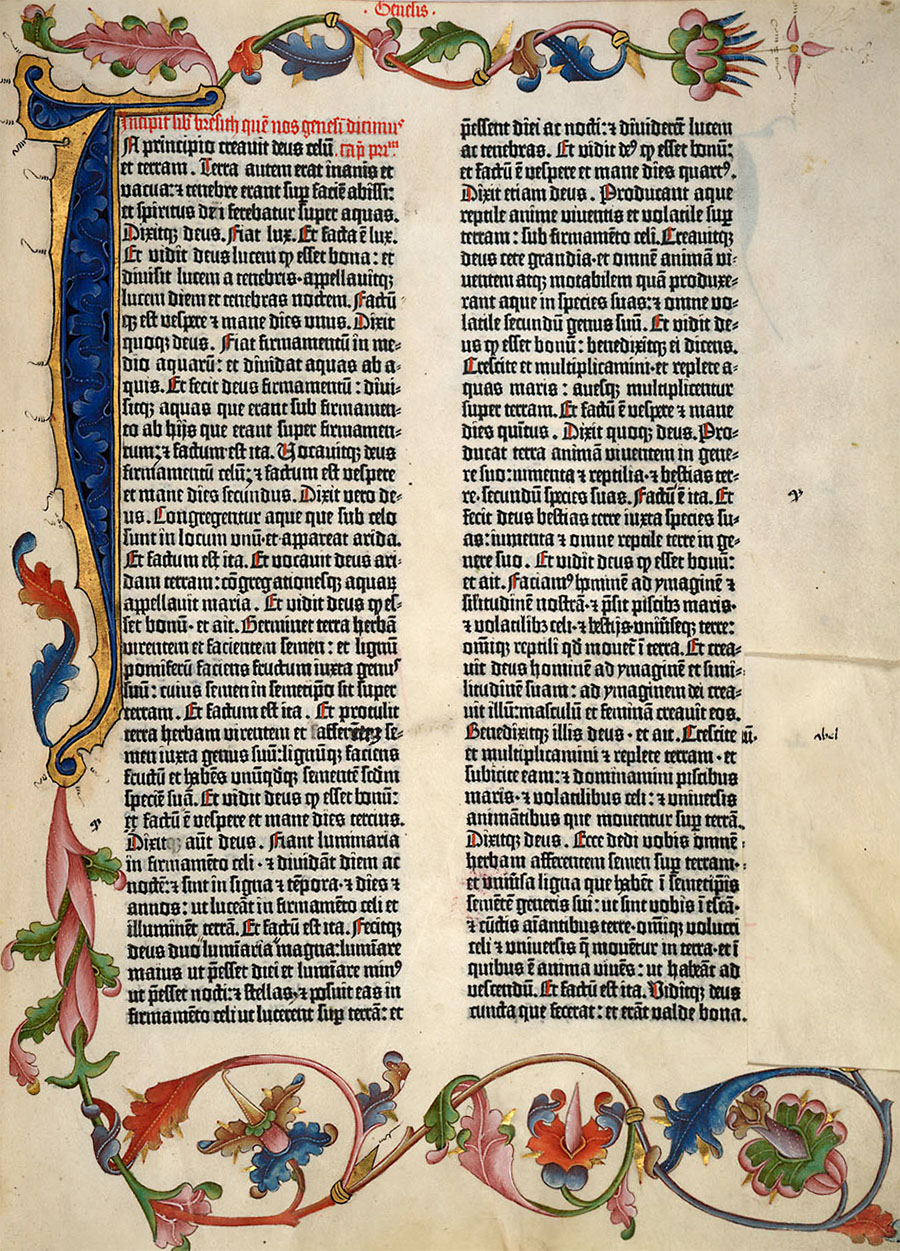 Genesis
Incipit lib̄ bresith quē nos genesim dicimꝰ
In principio creavit deus celū. cap̄ prīm
et terram. Terra autem erat inanis et
vacua: ⁊ tenebre erant sup faciē abissi:
et spiritus dei ferebatur super aquas.
Dixitqꝫ deus. Fiat lux. Et facta ē lux.
Et vidit deus lucem ꝙ esset bona: et
divisit lucem a tenebris· appellavitqꝫ
lucem diem et tenebras noctem. Factū
qꝫ est vespere ⁊ mane dies vnus. Dixit
quoqꝫ deus. Fiat firmamentū in me-
dio aquarū: et dividat aquas ab a-
quis. Et fecit deus firmamentū: divi-
sitqꝫ aquas que erant sub firmamen-
to ab hijs que erant super firmamen-
tum: ⁊ factum est ita. Vocavitqꝫ deus
firmamentū celū: ⁊ factum est vespere
et mane dies secundus. Dixit vero de-
us. Congregentur aque que sub celo
sunt in locum vnū et appareat arida.
Et factum est ita. Et vocavit deus ari-
dam terram: cōgregationesqꝫ aquaꝝ
appellavit maria. Et vidit deus ꝙ es-
set bonū· et ait. Germinet terra herbā
virentem et facientem semen: et lignū
pomiferū faciens fructum iuxta genuˢ
suū: cuius semen in semetipō sit super
terram. Et factum est ita. Et protulit
terra herbam virentem et afferentem se-
men iuxta genus suū: lignūqꝫ faciens
fructū et habēs vnūqdqꝫ sementē scdm
speciē suā. Et vidit deus ꝙ esset bonū:
et factū ē vespere et mane dies tercius.
Dixit aūt deus. Fiant luminaria
in firmamēto celi· ⁊ dividāt diem ac
noctē: ⁊ sint in signa ⁊ tēpora· ⁊ dies ⁊
annos: ut luceāt in firmamēto celi et
illuminēt terrā. Et factū est ita. Fecitqꝫ
deus duo lumīaria magna: lumīare
maius ut p̄esset diei et lumīare minꝰ
ut p̄esset nocti: ⁊ stellas· ⁊ posuit eas in
firmamēto celi ut lucerent sup terrā: et
p̄essent diei ac nocti: ⁊ dividerēt lucem
ac tenebras. Et vidit deꝰ ꝙ esset bonū:
et factū ē vespere et mane dies quartꝰ.
Dixit etiam deus. Producant aque
reptile anime viventis et volatile sup
terram: sub firmamēto celi. Creavitqꝫ
deus cete grandia· et omnē animā vi-
ventem atqꝫ motabilem quā produxe-
rant aque in species suas: ⁊ omne vo-
latile secundū genus suū. Et vidit de-
us ꝙ esset bonū: benedixitqꝫ ei dicens.
Crescite et multiplicamini· et replete a-
quas maris: avesqꝫ multiplicentur
super terram. Et factū ē vespere ⁊ mane
dies quītus. Dixit quoqꝫ deus. Pro-
ducat terra animā viventem in gene-
re suo: iumenta ⁊ reptilia· ⁊ bestias ter-
re· secundū species suas. Factū ē ita. Et
fecit deus bestias terre iuxta species su-
as: iumenta ⁊ omne reptile terre in ge-
nere suo. Et vidit deus ꝙ esset bonū:
et ait. Faciamꝰ hominē ad ymaginē ⁊
silitudinē nostrā· ⁊ p̄sit piscibꝫ maris·
⁊ volatilibꝫ celi· ⁊ bestijs· vniūseqꝫ terre:
omīqꝫ reptili qd movet̄ ī terra. Et crea-
vit deus hominē ad ymaginē et simi-
litudinē suam: ad ymaginem dei crea-
vit illū: masculū et feminā creavit eos.
Benedixitqꝫ illis deus· et ait. Crescite
et multiplicamini ⁊ replete terram· et
subicite eam: ⁊ dominamini piscibus
maris· ⁊ volatilibus celi: ⁊ vniversis
animātibus que moventur sup terrā.
Dixitqꝫ deus. Ecce dedi vobis omnē
herbam afferentem semen sup terram·
et vnīūsa ligna que habēt ī semetip̄is
semētē generis sui: ut sint vobis ī escā·
⁊ cūctis aīantibus terre· omīqꝫ volucri
celi ⁊ vniversis q̄ movētur in terra· et ī
quibus ē anima vivēs: ut habeāt ad
vescendū. Et factū est ita. Viditqꝫ deus
cuncta que fecerat: et erāt valde bona.